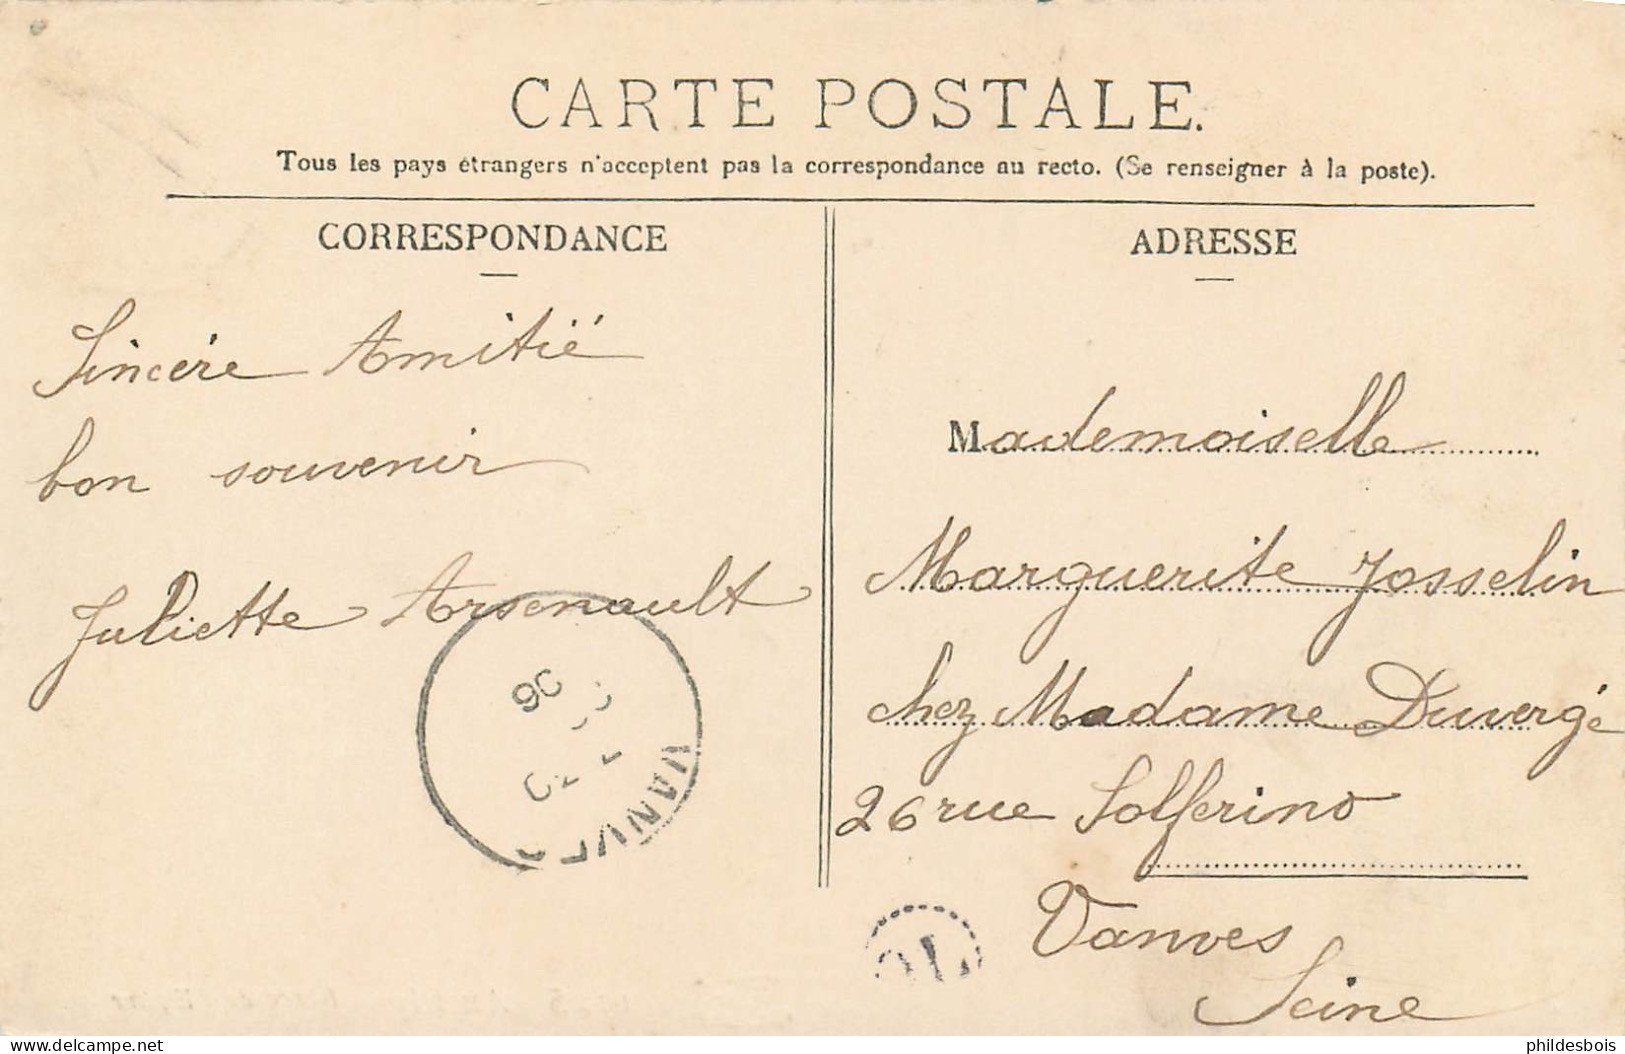 CARTE POSTALE.
Tous les pays étrangers n'acceptent pas la correspondance au recto. (Se renseigner à la poste).
CORRESPONDANCE
Sincére Amitié
bon souvenir
Juliette Arsenault
ADRESSE
Mademoiselle
Marguerite Josselin
chez Madame Duvergé
26 rue Solferino
Vanves
Seine
VANVES
06
delcampe.net
phildesbois